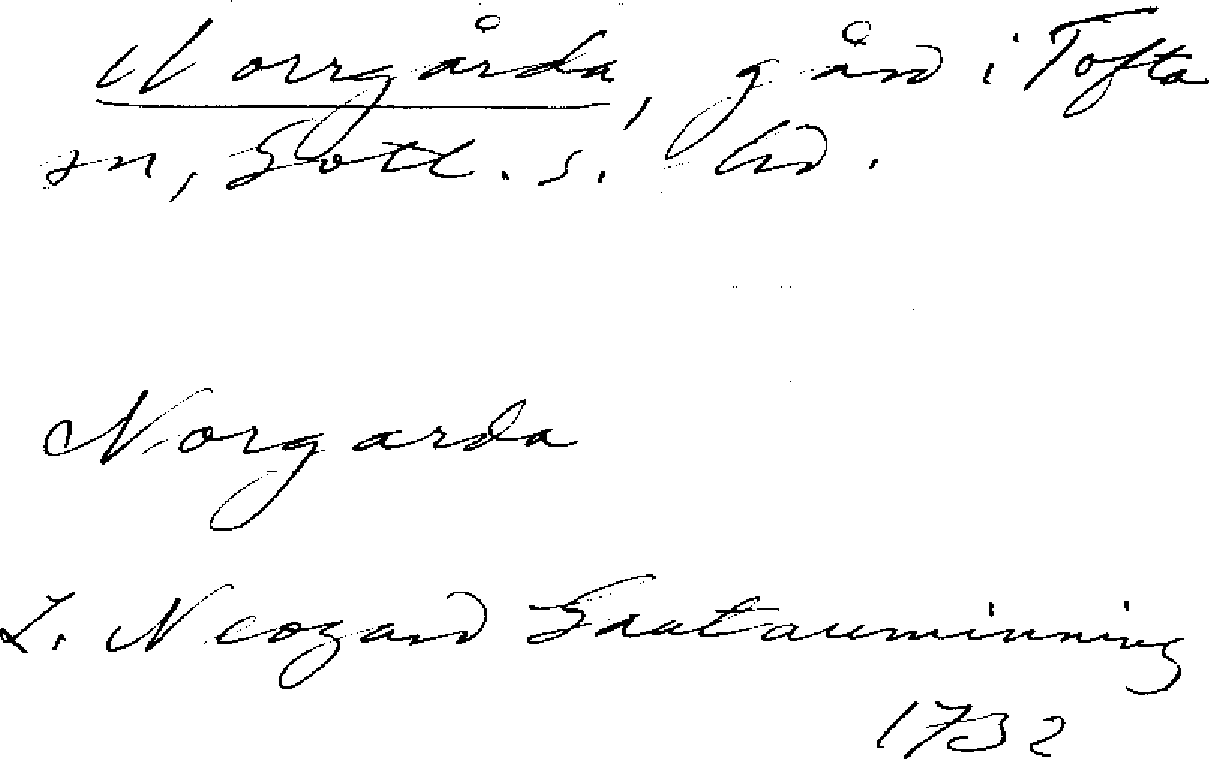 Norrgårda, gård i Tofta
sn, Gotl. s. hd.
Norgarda
L. Neogard Gautauminning
1732